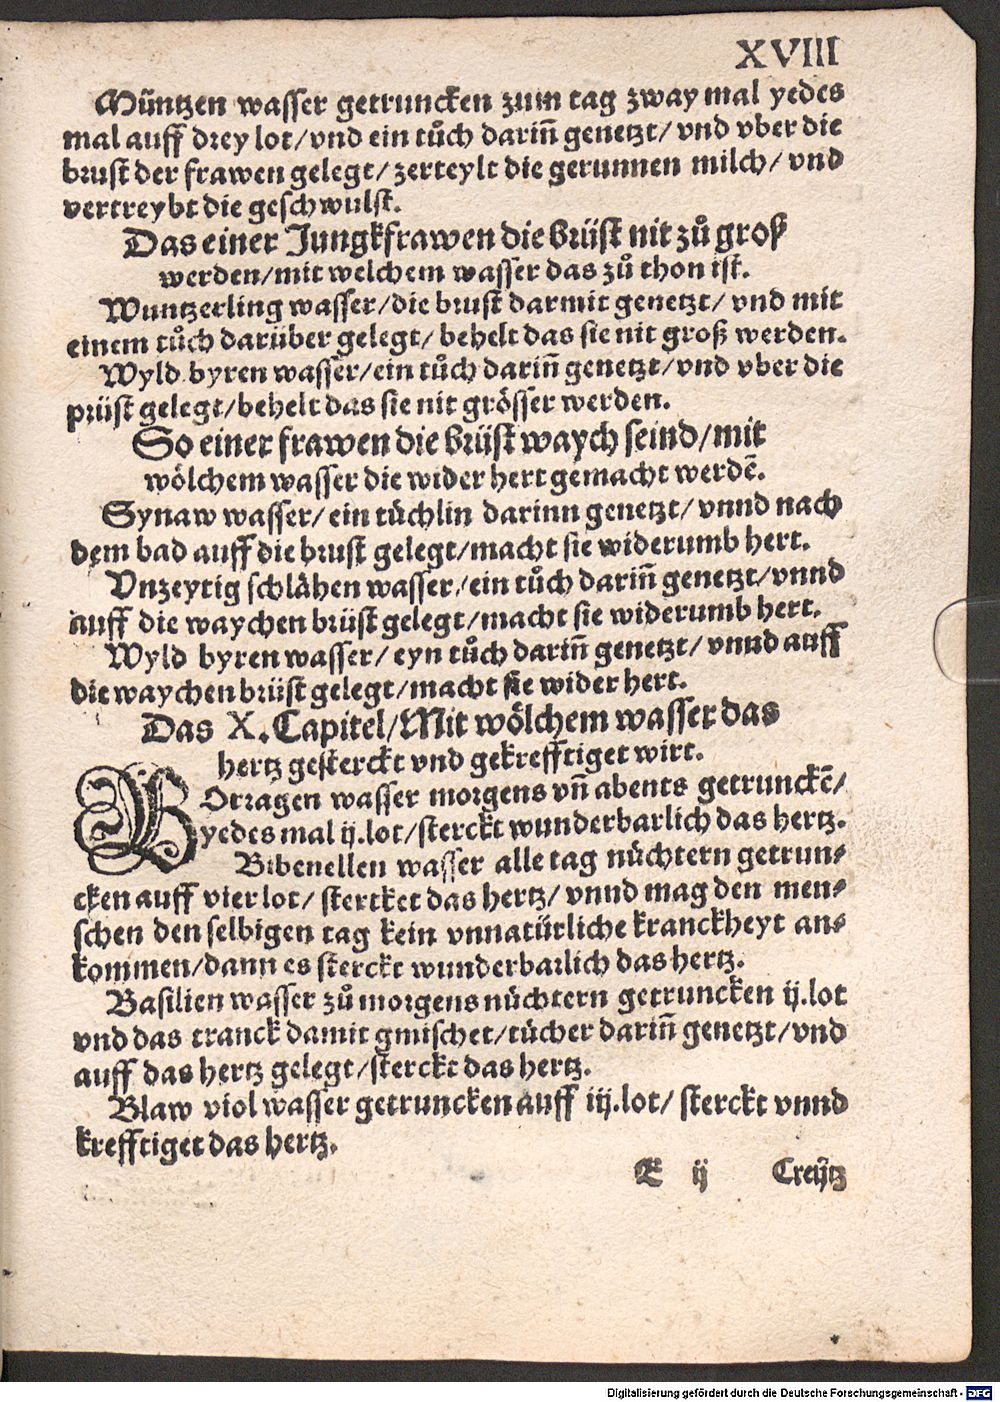 XVIII
Mũntzen wasser getruncken zum tag zway mal yedes
mal auff drey lot/vnd ein tůch dariñ genetzt/ vnd vber die
brust der frawen gelegt/ zerteylt die gerunnen milch/ vnd
vertreybt die geschwulst.
Das einer Jungkfrawen die brüst nit zů groß
werden/mit welchem wasser das zů thon ist.
Wuntzerling wasser/die brust darmit genetzt/ vnd mit
einem tůch darüber gelegt/ behelt das sie nit groß werden.
Wyld byren wasser/ein tůch dariñ genetzt/vnd vber die
prüst gelegt/behelt das sie nit grösser werden.
So einer frawen die brüst waych seind/mit
wölchem wasser die wider hert gemacht werdē.
Synaw wasser/ein tüchlin darinn genetzt/ vnnd nach
dem bad auff die brust gelegt/macht sie widerumb hert.
Vnzeytig schlähen wasser/ein tůch dariñ genetzt/vnnd
auff die waychen brüst gelegt/macht sie widerumb hert.
Wyld byren wasser/ eyn tůch dariñ genetzt/ vnnd auff
die waychen brüst gelegt/macht sie wider hert.
Das X. Capitel/Mit wölchem wasser das
hertz gesterckt vnd gekrefftiget wirt.
BOrragen wasser morgens vñ abents getrunckē/
yedes mal ij.lot/sterckt wunderbarlich das hertz.
Bibenellen wasser alle tag nüchtern getrun⸗
cken auff vier lot/ stercket das hertz/ vnnd mag den men⸗
schen den selbigen tag kein vnnatürliche kranckheyt an⸗
kommen/dann es sterckt wunderbarlich das hertz.
Basilien wasser zů morgens nüchtern getruncken ij.lot
vnd das tranck damit gmischet/tücher dariñ genetzt/vnd
auff das hertz gelegt/sterckt das hertz.
Blaw viol wasser getruncken auff iij.lot/ sterckt vnnd
krefftiget das hertz.
E ij Creütz
Digitalisierung gefördert durch die Deutsche Forschungsgemeinschaft - DFG